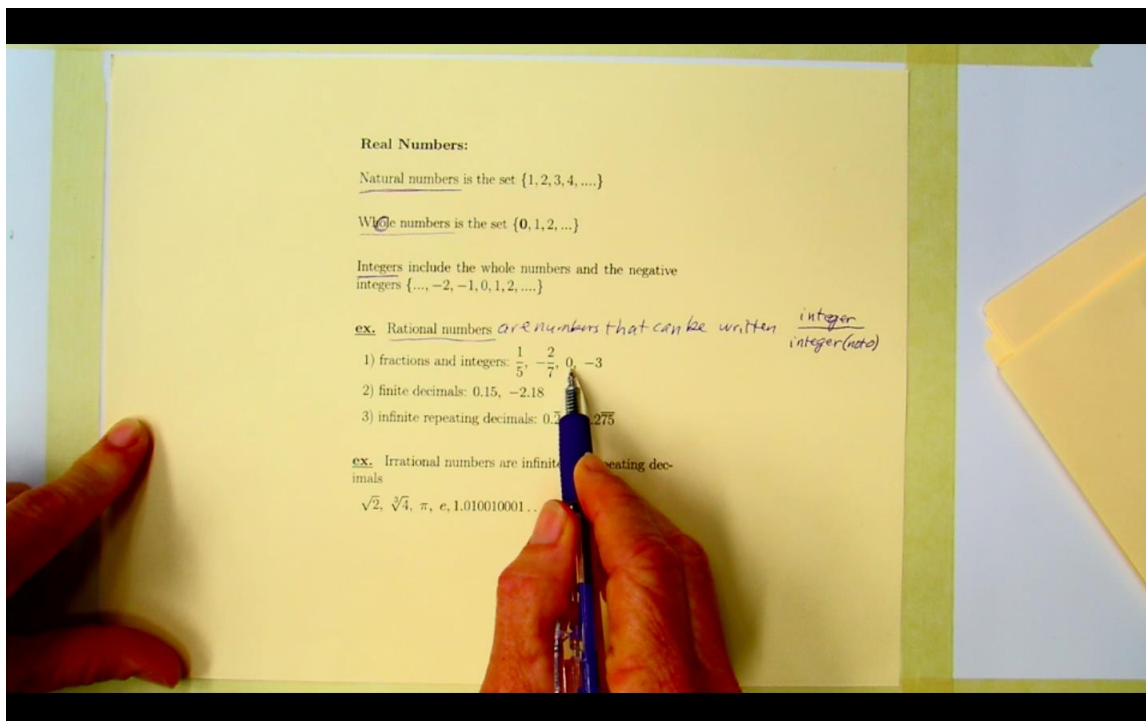 Real Numbers:
Natural numbers is the set {1, 2, 3, 4, ....}
Whole numbers is the set {0, 1, 2, ...}
Integers include the whole numbers and the negative
integers {..., −2, −1, 0, 1, 2, ....}
ex. Rational numbers are numbers that can be written integer/integer (not 0)
1) fractions and integers: 1/5, −2/7, 0, −3
2) finite decimals: 0.15, −2.18
3) infinite repeating decimals:
ex. Irrational numbers are dec-
imals
√2, ∛4, π, e, 1.010010001 . .